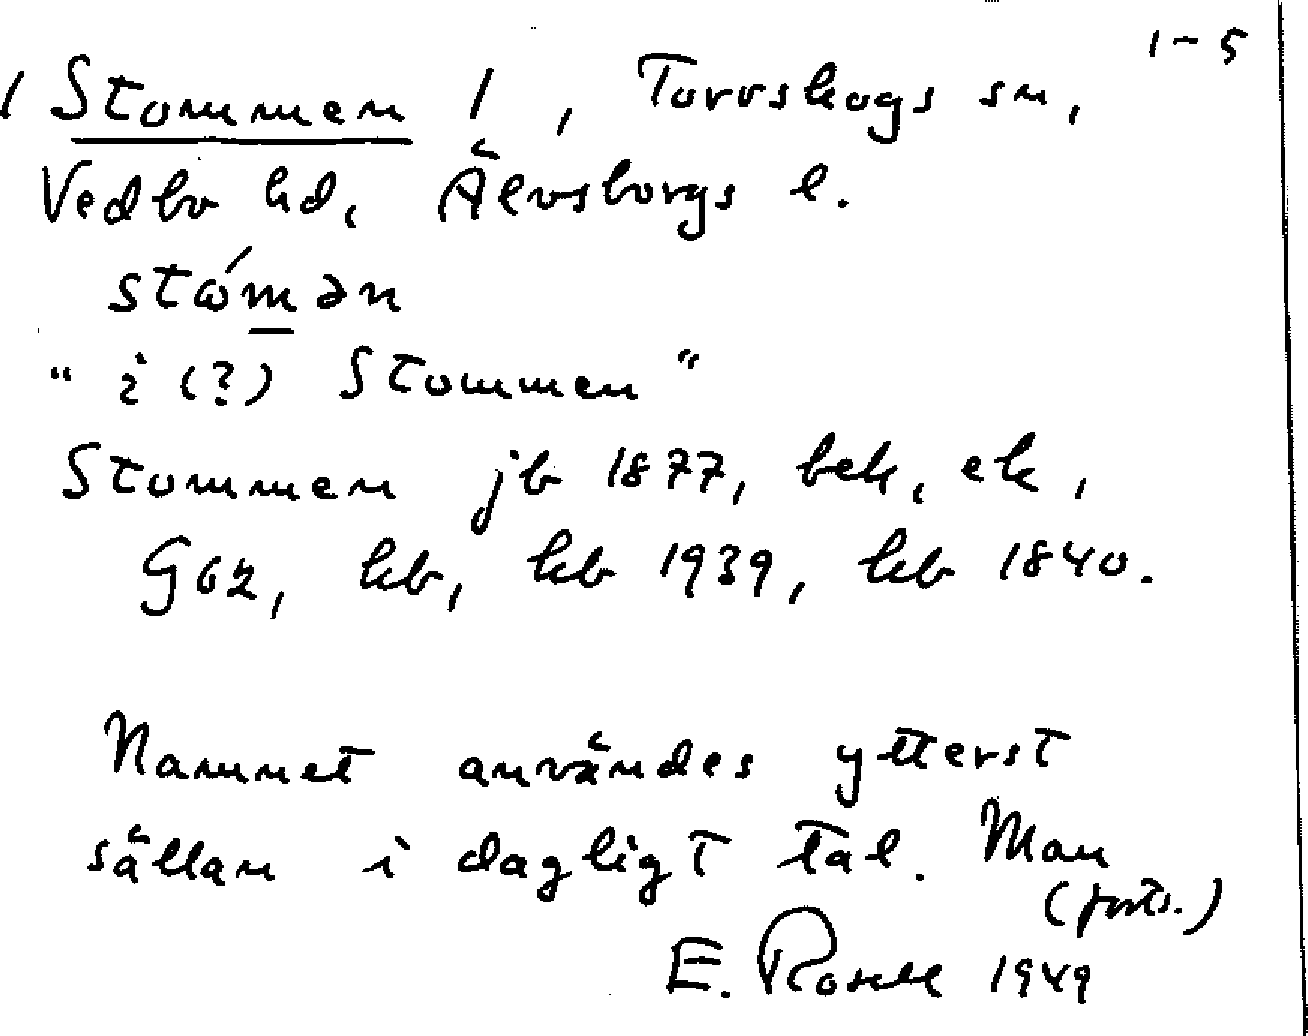 1-5
/ Stommen /, Torrskogs sn,
Vedbo hd, Älvsborgs l.
stώmən
" i (?) Stommen "
Stommen jb 1877, bek, ek,
Göz, kb, hb 1939, kb 1840.
Namnet användes ytterst
sällan i dagligt tal. Man
(forts.)
E. Rosell 1949